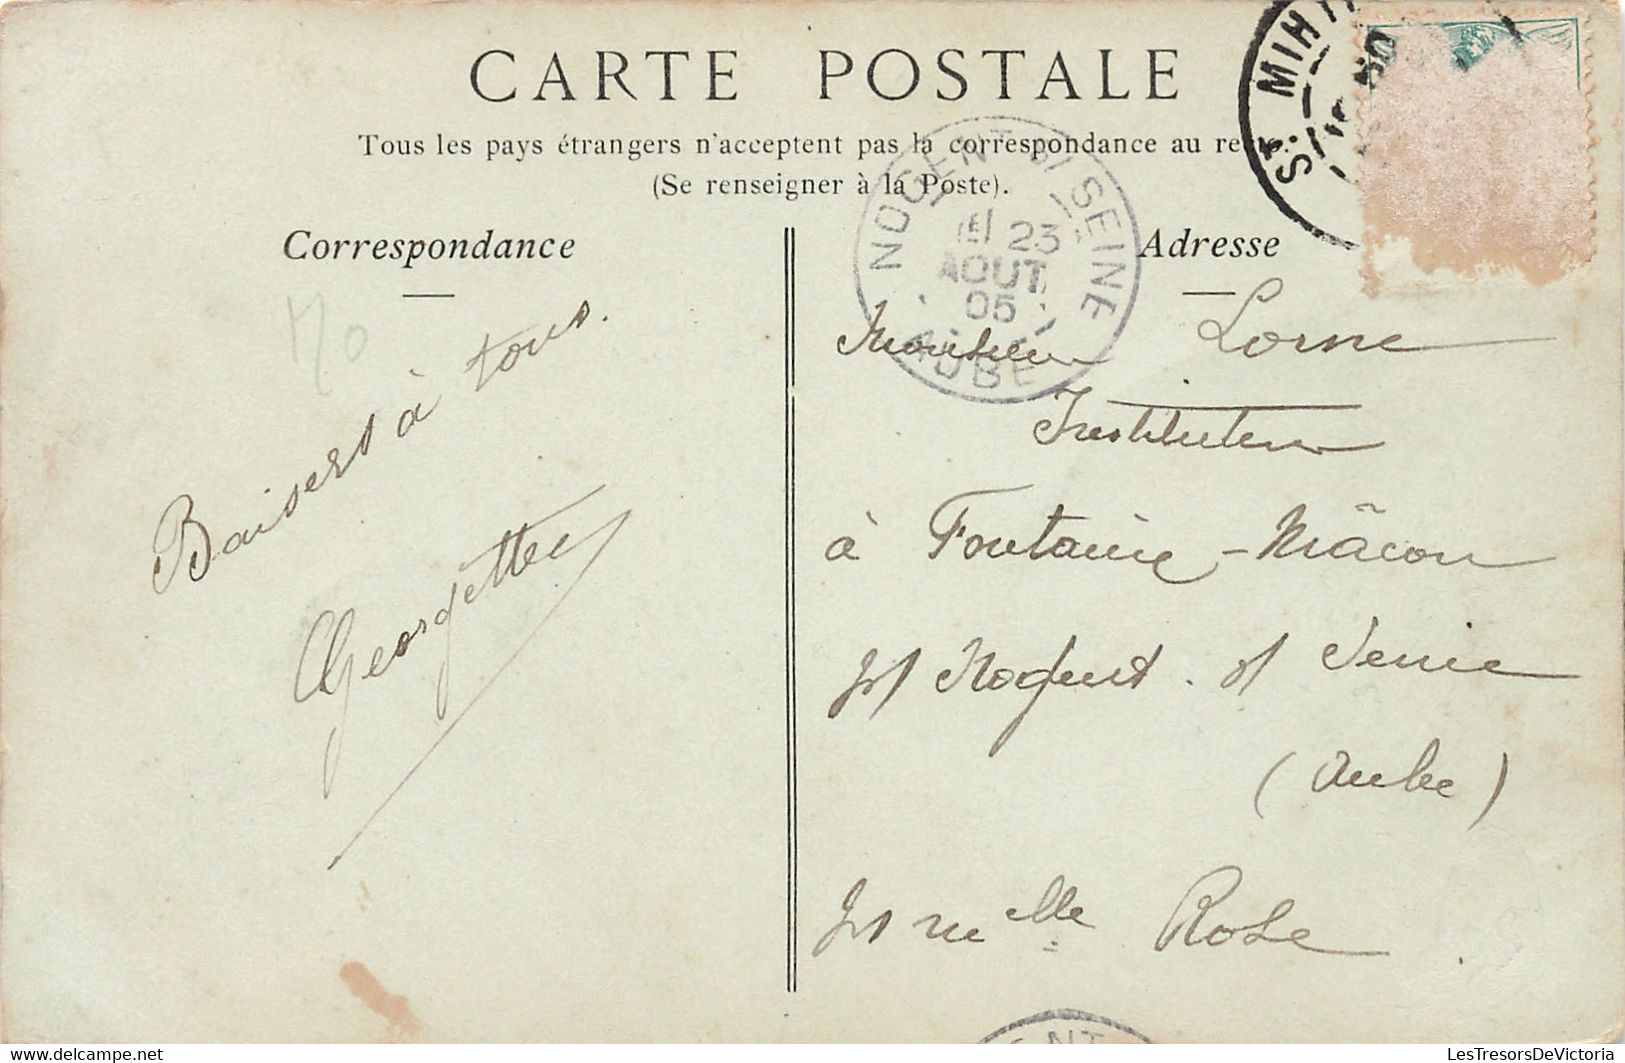 CARTE POSTALE
Tous les pays étrangers n'acceptent pas la correspondance au recto.
(Se renseigner à la Poste).
Correspondance
Baisers à tous.
Georgette
120
Adresse
Monsieur Lorne
Instituteur
à Fontaine-Mâcon
Nogent s/ Seine
(Aube)
Melle Rose
NOGENT S/ SEINE
23
AOUT
05
AUBE
ST. MIHI
ENT
LesTresorsDeVictoria